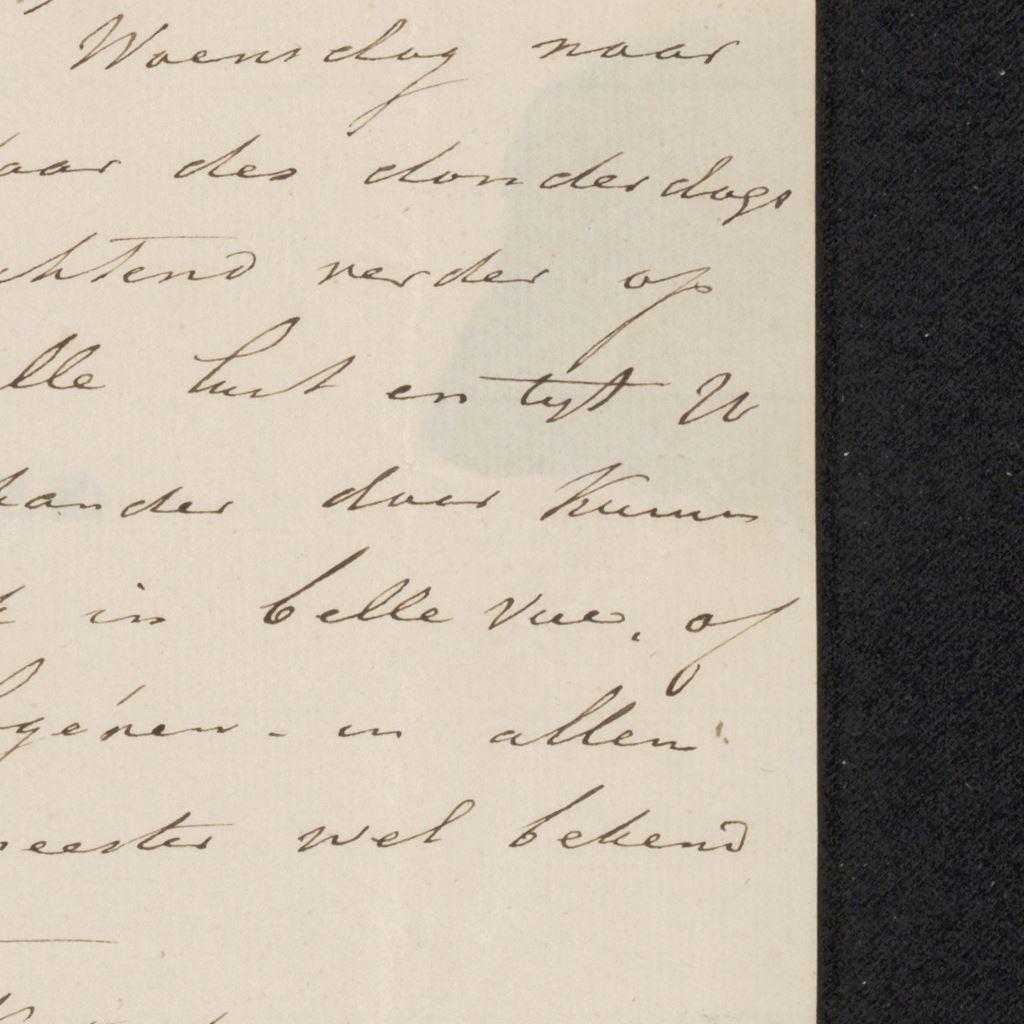 Woensdag naar
daar des donderdags
chtend verder op
elle lust en tyt U
kander daar Kunnen
in belle vue, of
génen - in allen
meester wel bekend